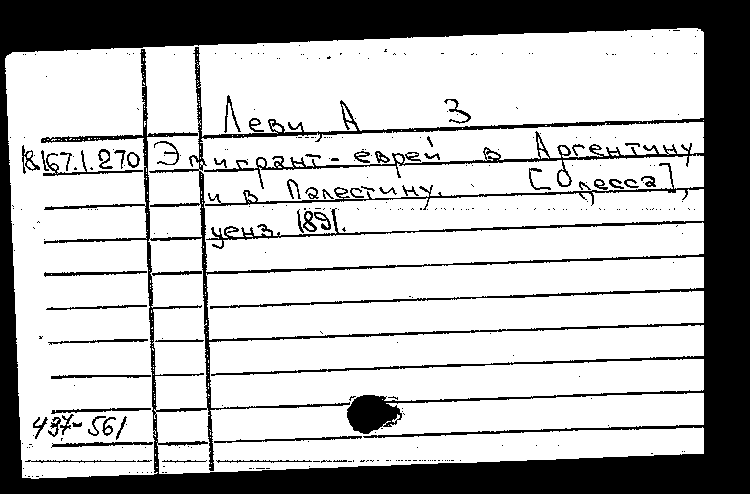 Леви, А З
18167.1.270 Эмигрант-еврей в Аргентину
и в Палестину. [Одесса],
ценз. 1891.
437-561